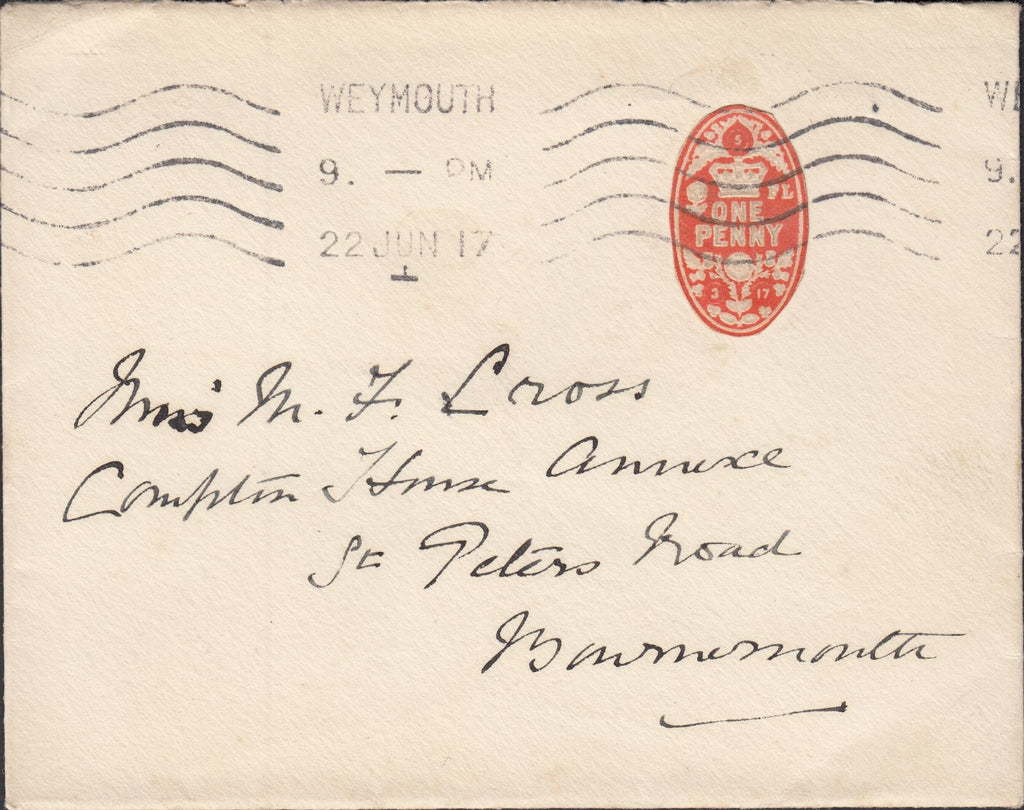 WEYMOUTH
9. — PM
22 JUN 17
WE
9.
22
5
FL
ONE
PENNY
3 17
Miss M. F. Cross
Compton House Annexe
St Peters Road
Bournemouth